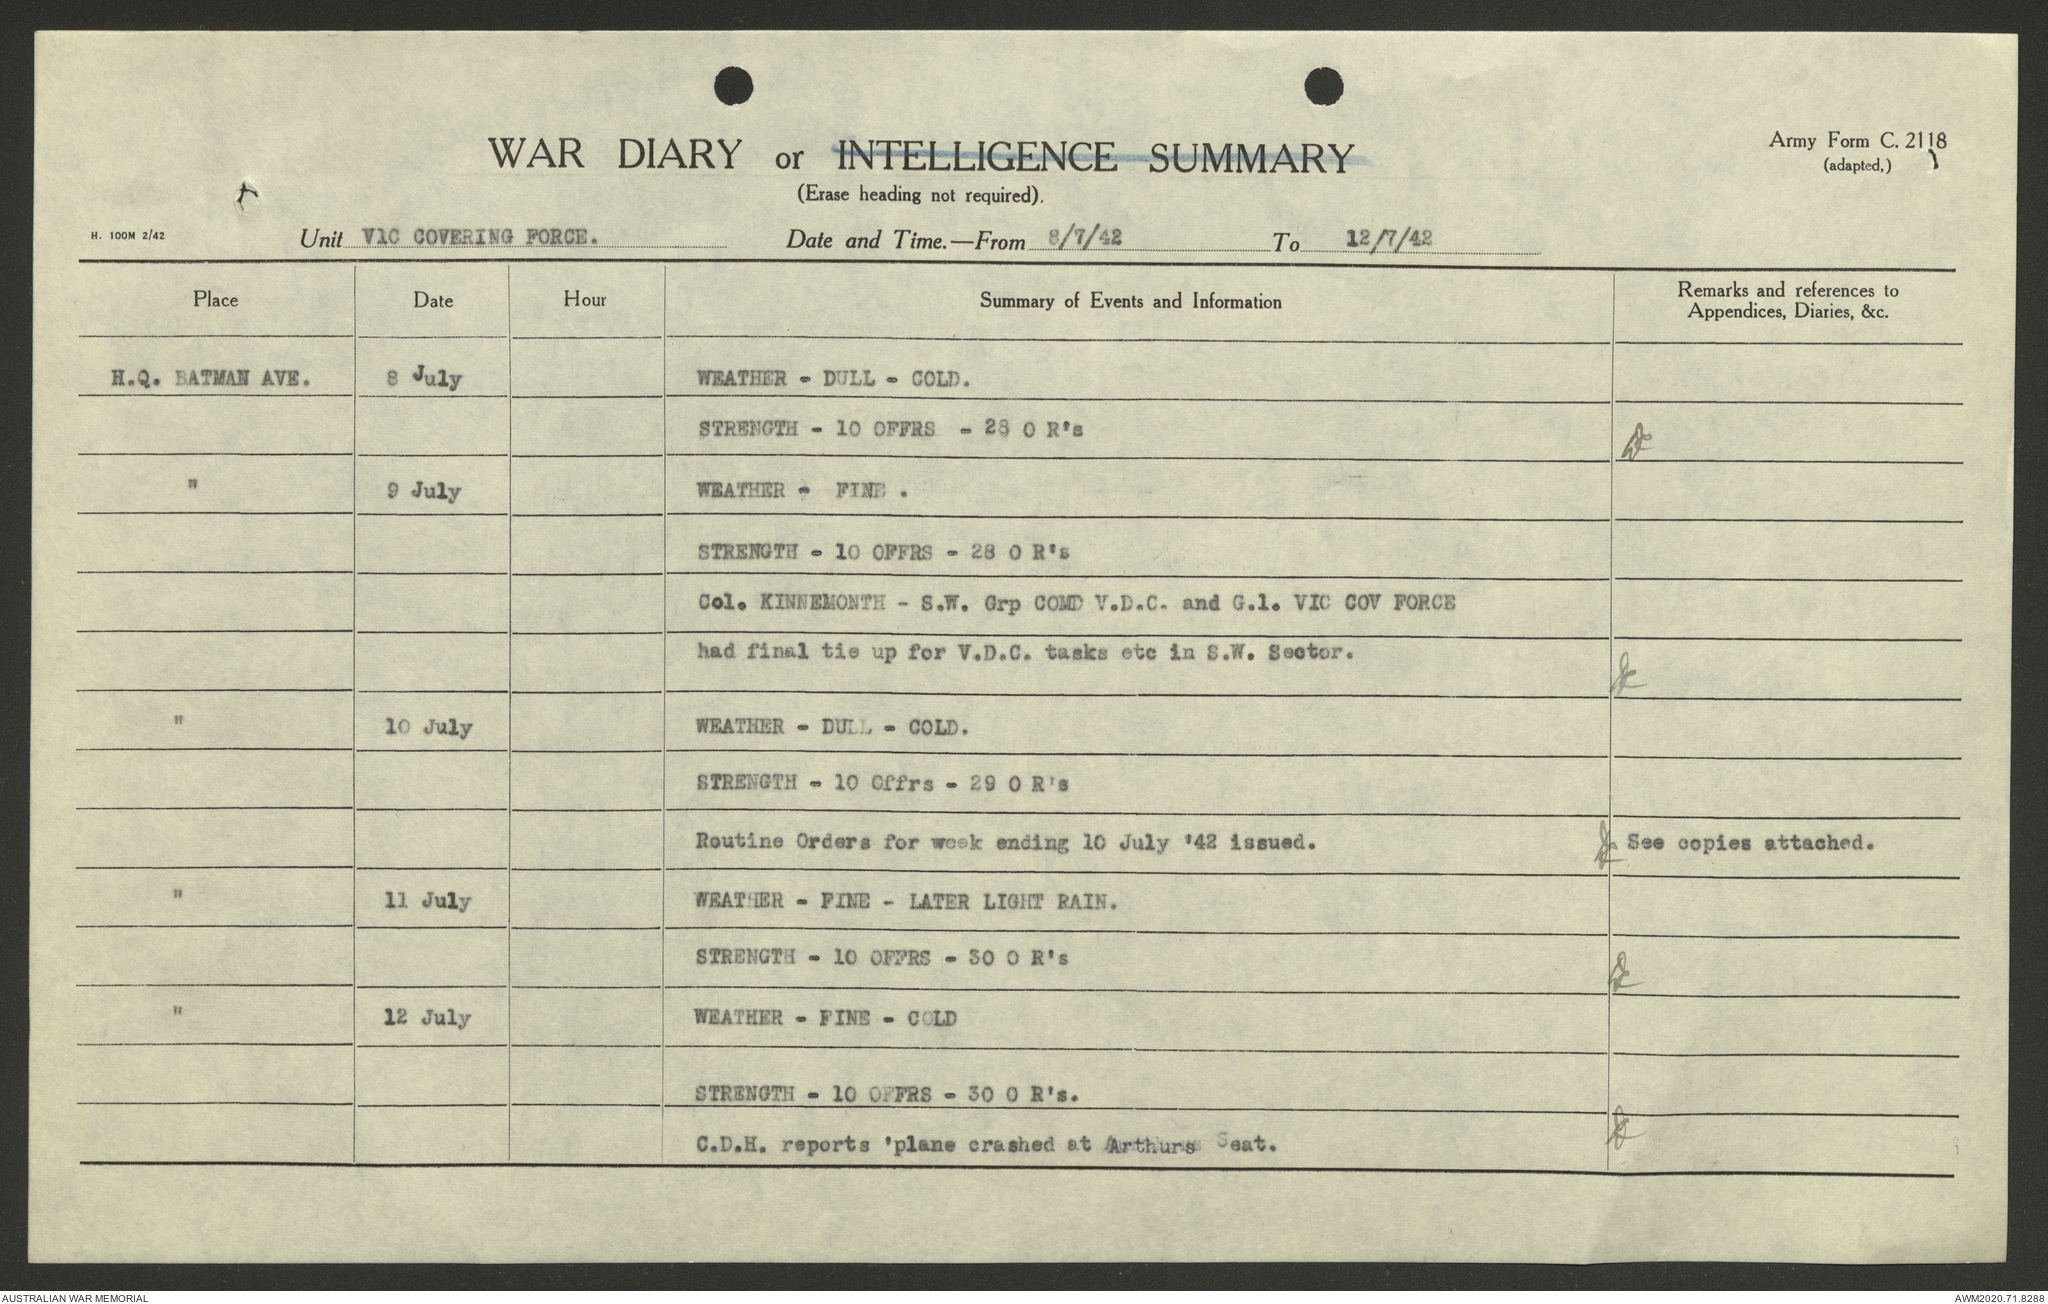 WAR DIARY or INTELLIGENCE SUMMARY
(Erase heading not required).
Army Form C. 2118
(adapted,)
H. 100M 2/42
Unit VIC COVERING FORCE. Date and Time.—From 8/7/42 To 12/7/42
Place Date Hour Summary of Events and Information Remarks and references to Appendices, Diaries, &c.
H.Q. BATMAN AVE. 8 July WEATHER - DULL - COLD.
STRENGTH - 10 OFFRS - 28 O R's
" 9 July WEATHER - FINE .
STRENGTH - 10 OFFRS - 28 O R's
Col. KINNEMONTH - S.W. Grp COMD V.D.C. and G.1. VIC COV FORCE
had final tie up for V.D.C. tasks etc in S.W. Sector.
" 10 July WEATHER - DULL - COLD.
STRENGTH - 10 Offrs - 29 O R's
Routine Orders for week ending 10 July '42 issued. See copies attached.
" 11 July WEATHER - FINE - LATER LIGHT RAIN.
STRENGTH - 10 OFFRS - 30 O R's
" 12 July WEATHER - FINE - COLD
STRENGTH - 10 OFFRS - 30 O R's.
C.D.H. reports 'plane crashed at Arthurs Seat.
AUSTRALIAN WAR MEMORIAL
AWM2020.71.8288